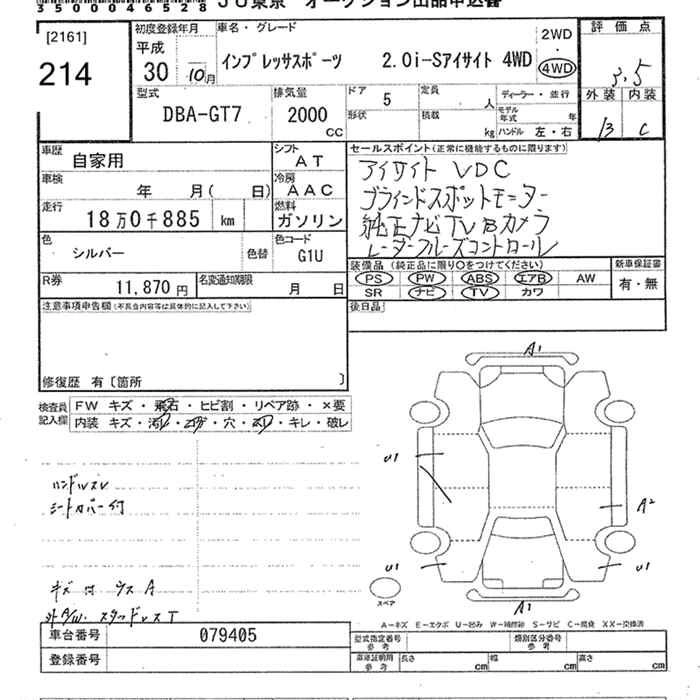 35000046528 JU東京 オークション出品申込書
[2161]
214
初度登録年月
平成
30 10月
車名・グレード
インプレッサスポーツ 2.0i-Sアイサイト 4WD
2WD
・
4WD
評価点
3.5
外装 内装
B C
型式
DBA-GT7
排気量
2000
CC
ドア 5
形状
定員 人
積載 kg
ディーラー・並行
モデル年式 年
ハンドル 左・右
車歴
自家用
シフト
AT
車検
年 月( 日)
冷房
AAC
走行
18万0千885 km
燃料
ガソリン
色
シルバー
色替
色コード
G1U
R券
11,870円
名変通知期限
月 日
セールスポイント(正常に機能するものに限ります)
アイサイト VDC
ブラインドスポットモニター
純正ナビTV Bカメラ
レーダークルーズコントロール
装備品 (純正品に限り○をつけてください)
PS PW ABS エアB AW
SR ナビ TV カワ
新車保証書
有・無
後日品
注意事項申告欄(不具合内容等は具体的に記入して下さい)
修復歴 有〔箇所 〕
検査員
記入欄
FW キズ・飛石・ヒビ割・リペア跡・×要
内装 キズ・汚レ・コゲ・穴・スレ・キレ・破レ
ハンドルスレ
シートカバー付
キズ 凹 ウス A
外A/W. スタッドレスT
A1
U1
A2
U1
U1
A1
スペア
A－キズ E－エクボ U－凹み W－補修跡 S－サビ C－腐食 XX－交換済
車台番号 079405
登録番号
型式指定番号
参考
類別区分番号
参考
車庫証明用
参考
長さ cm
幅 cm
高さ cm